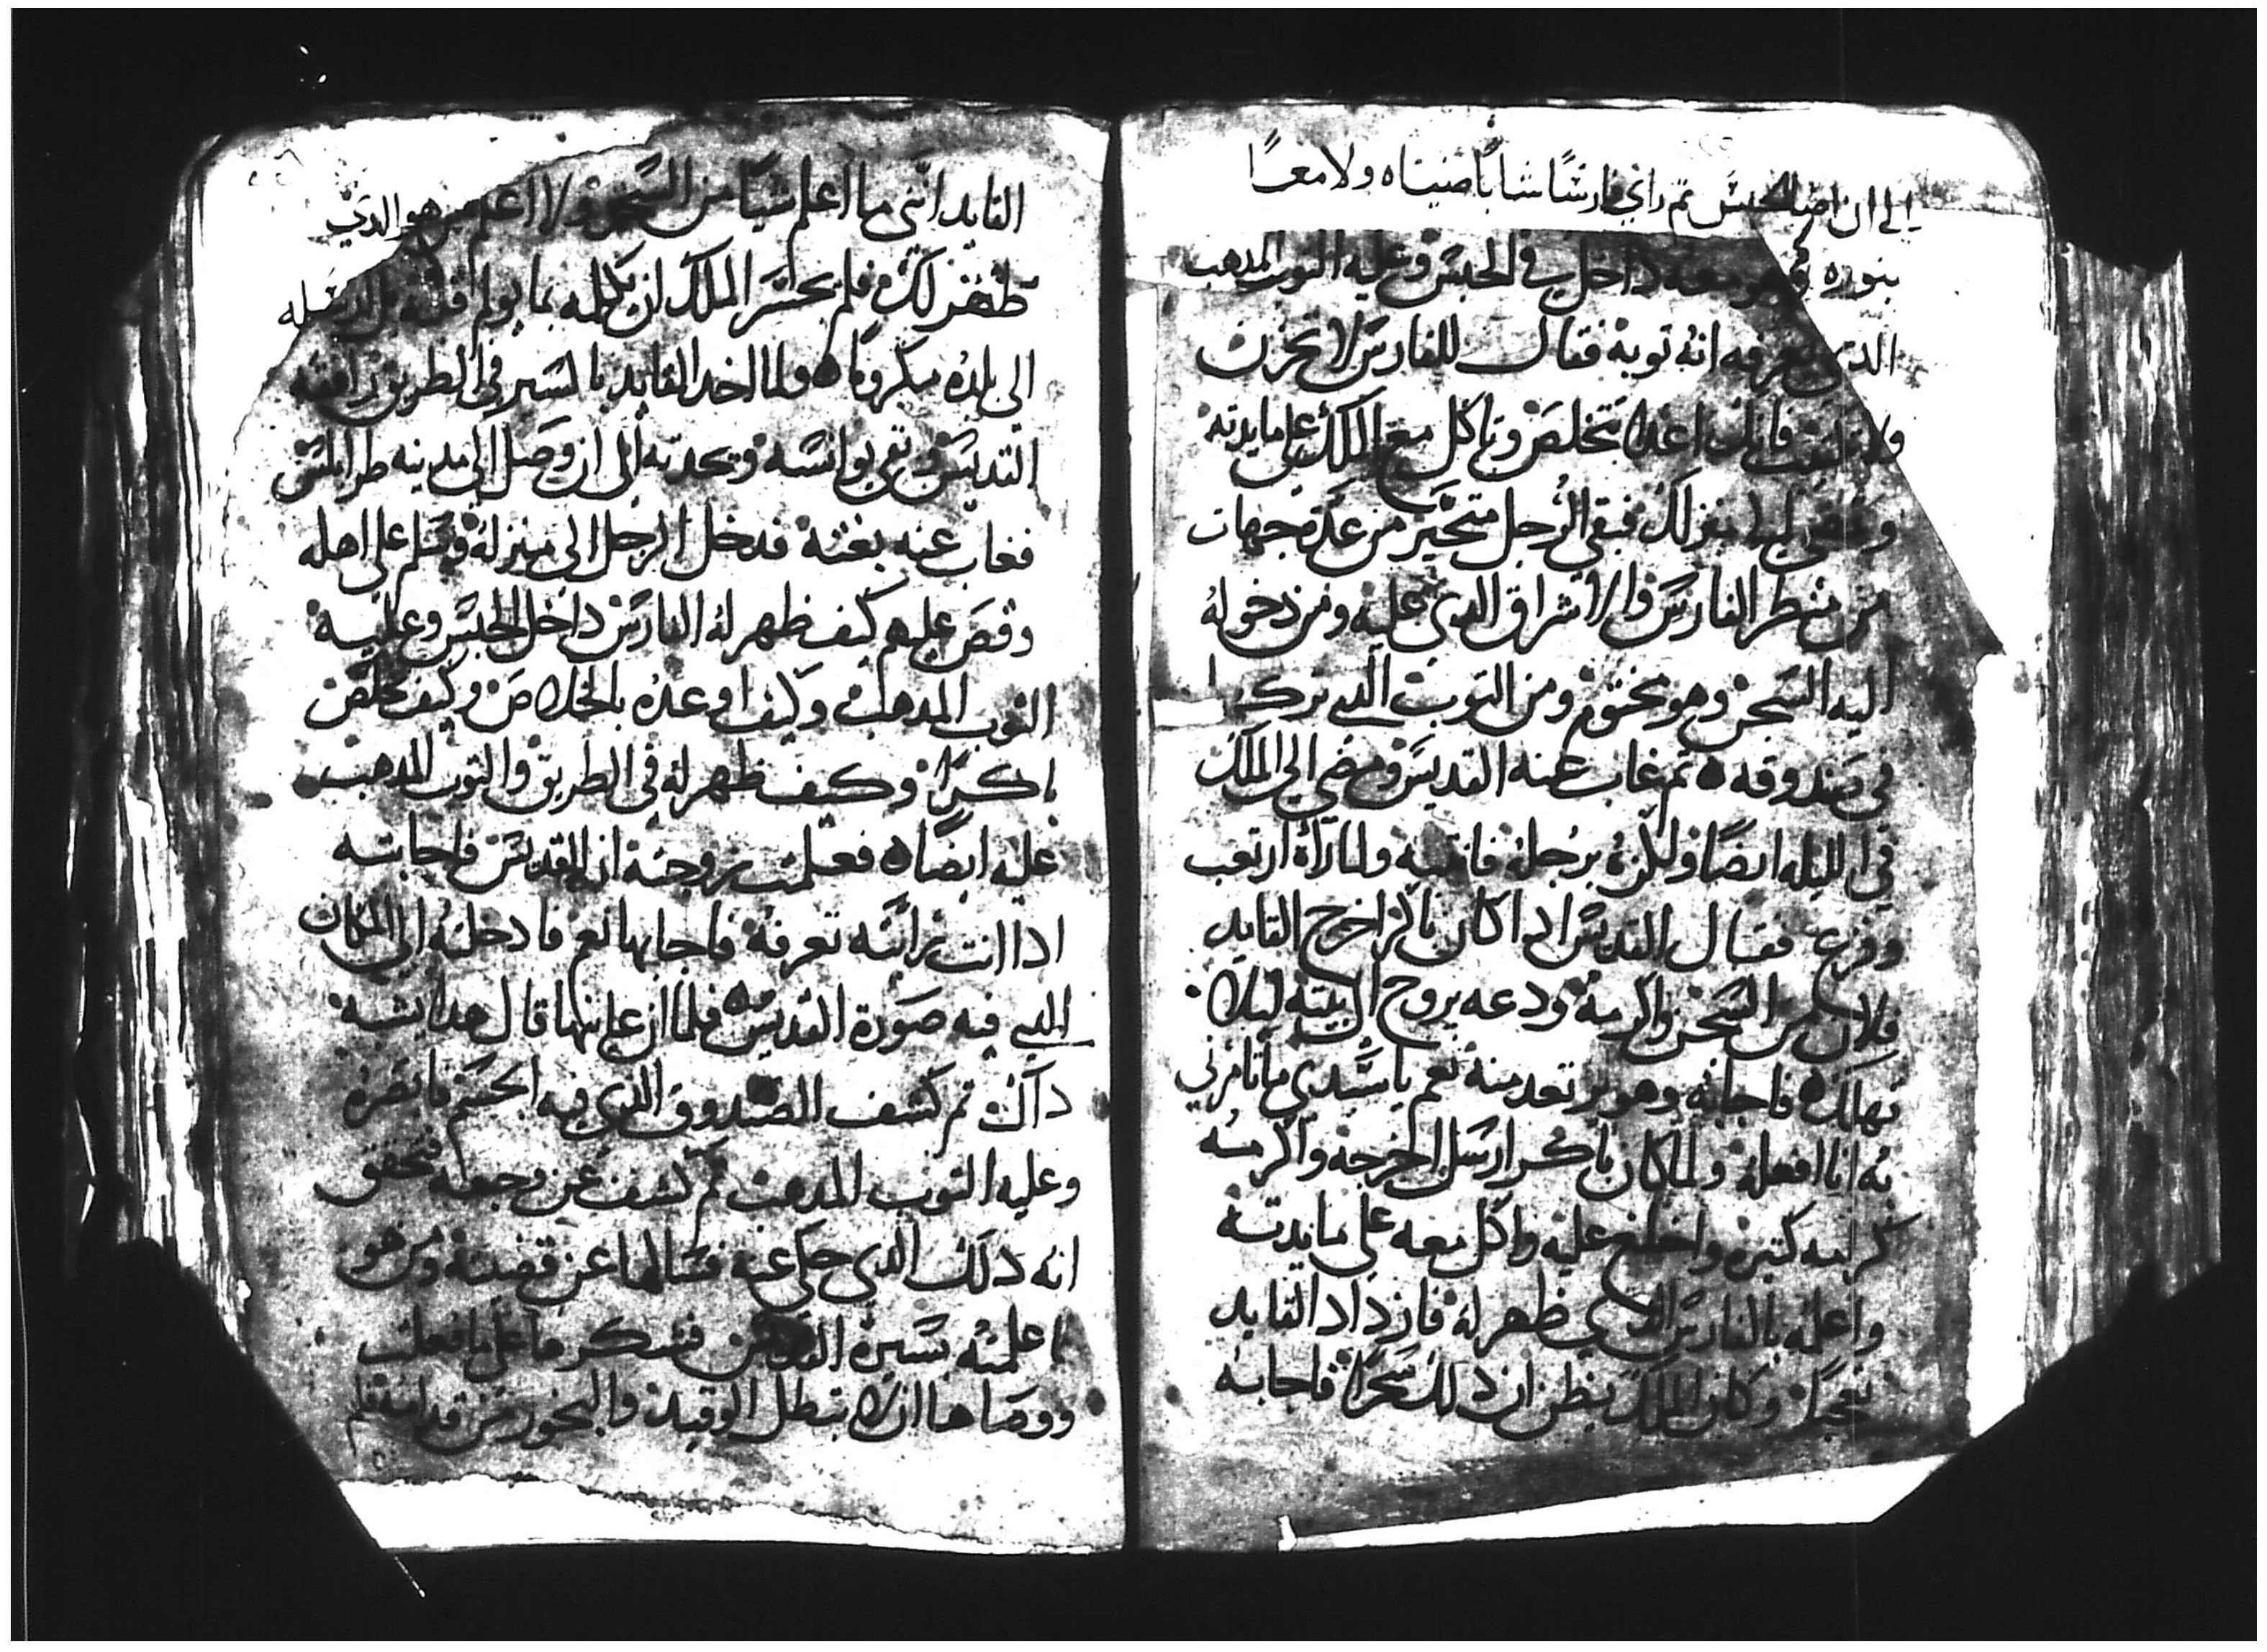 الي ان اضا الحبس تم راي فارسًا شابًا ضيياه ولامعًا
بنوره وهو معه داخل في الحبس وعليه التوب المدهب
الدي يعرفه انه توبه فقال للفارس لا تحزن
ولا فانك غدا تتخلص وتاكل مع الملك علي مايدته
وتمضي لمنزلك فبقي الرجل متحير من عدة جهات
من منطر الفارس والاشراق الدي عليه ومن دخوله
اليه السجن وهو مختوم ومن التوب الدي تركه
في صندوقه ه تم غاب عنه القديس ومضي الي الملك
في الليله ايضًا ولكزه برجله فانتبه ولما راه ارتعب
وفزع فقال القديس ادا كان باكر اخرج القايد
فلان من السجن واكرمه ودعه يروح الي بيته ليلا
تهلك ه فاجابه وهو يرتعد منه نعم ياسيدي ماتامرني
به انا افعله ولما كان باكر ارسل اخرجه واكرمه
كرامه كتيره واخلع عليه واكل معه علي مايدته
واعلمه بالفارس الدي ظهر له فازداد القايد
تعجبًا وكان الملك يظن ان دلك سحرًا فاجابه
القايد انني ما اعلم شيًا من السحر ولا اعلم من هو الدي
ظهر لك فلم يجسر الملك ان يكلمه بما يولم قلبه بل ارسله
الي بلده مكرومًا ه ولما اخد القايد بالسير في الطريق رافقه
القديس وبقي يوانسه ويحدته الي ان وصل الي مدينه طرابلس
فغاب عنه بغته فدخل الرجل الي منزله وسلم علي اهله
وقص عليهم كيف ظهر له الفارس داخل الحبس وعليه
التوب المدهب وكيف اوعده بالخلاص وكيف تخلص
باكرًا وكيف ظهر له في الطريق والتوب المدهب
عليه ايضًا ه فعلمت زوجته انه القديس فاجابته
ادا انت رايته تعرفه فاجابها نعم فادخلته الي المكان
الدي فيه صورة القديس فلما ان عاينها قال هدا يشبه
داك تم كشف الصندوق الدي فيه الجسم فابصره
وعليه التوب المدهب تم كشف عن وجهه فتحقق
انه دلك الدي حكي عنه فسالها عن قصته ومن هو
فاعلمته بسيرة القديس فشكرها علي ما فعلت
ووصاها ان لا تبطل الوقيد والبخور من قدامه فلم